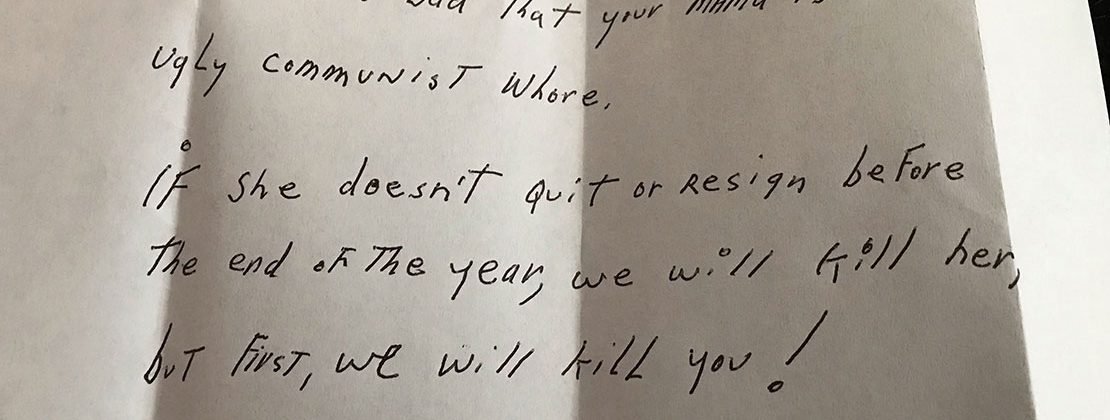 bad That your mama is
Ugly communisT whore.
iF she doesn'T quiT or Resign beFore
The end oF The year, we will kill her,
buT FirsT, we will kill you!